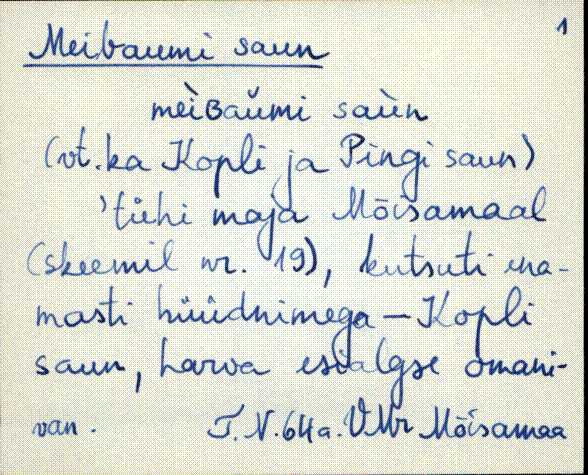 1
Meibaumi saun
mèiʙaŭmi saùn
(vt. ka Kopli ja Pingi saun)
'tühi maja Mõisamaal
(skeemil nr. 19), kutsuti ena-
masti hüüdnimega – Kopli
saun, harva esialgse omani-
van. T. N. 64a. VMr Mõisamaa